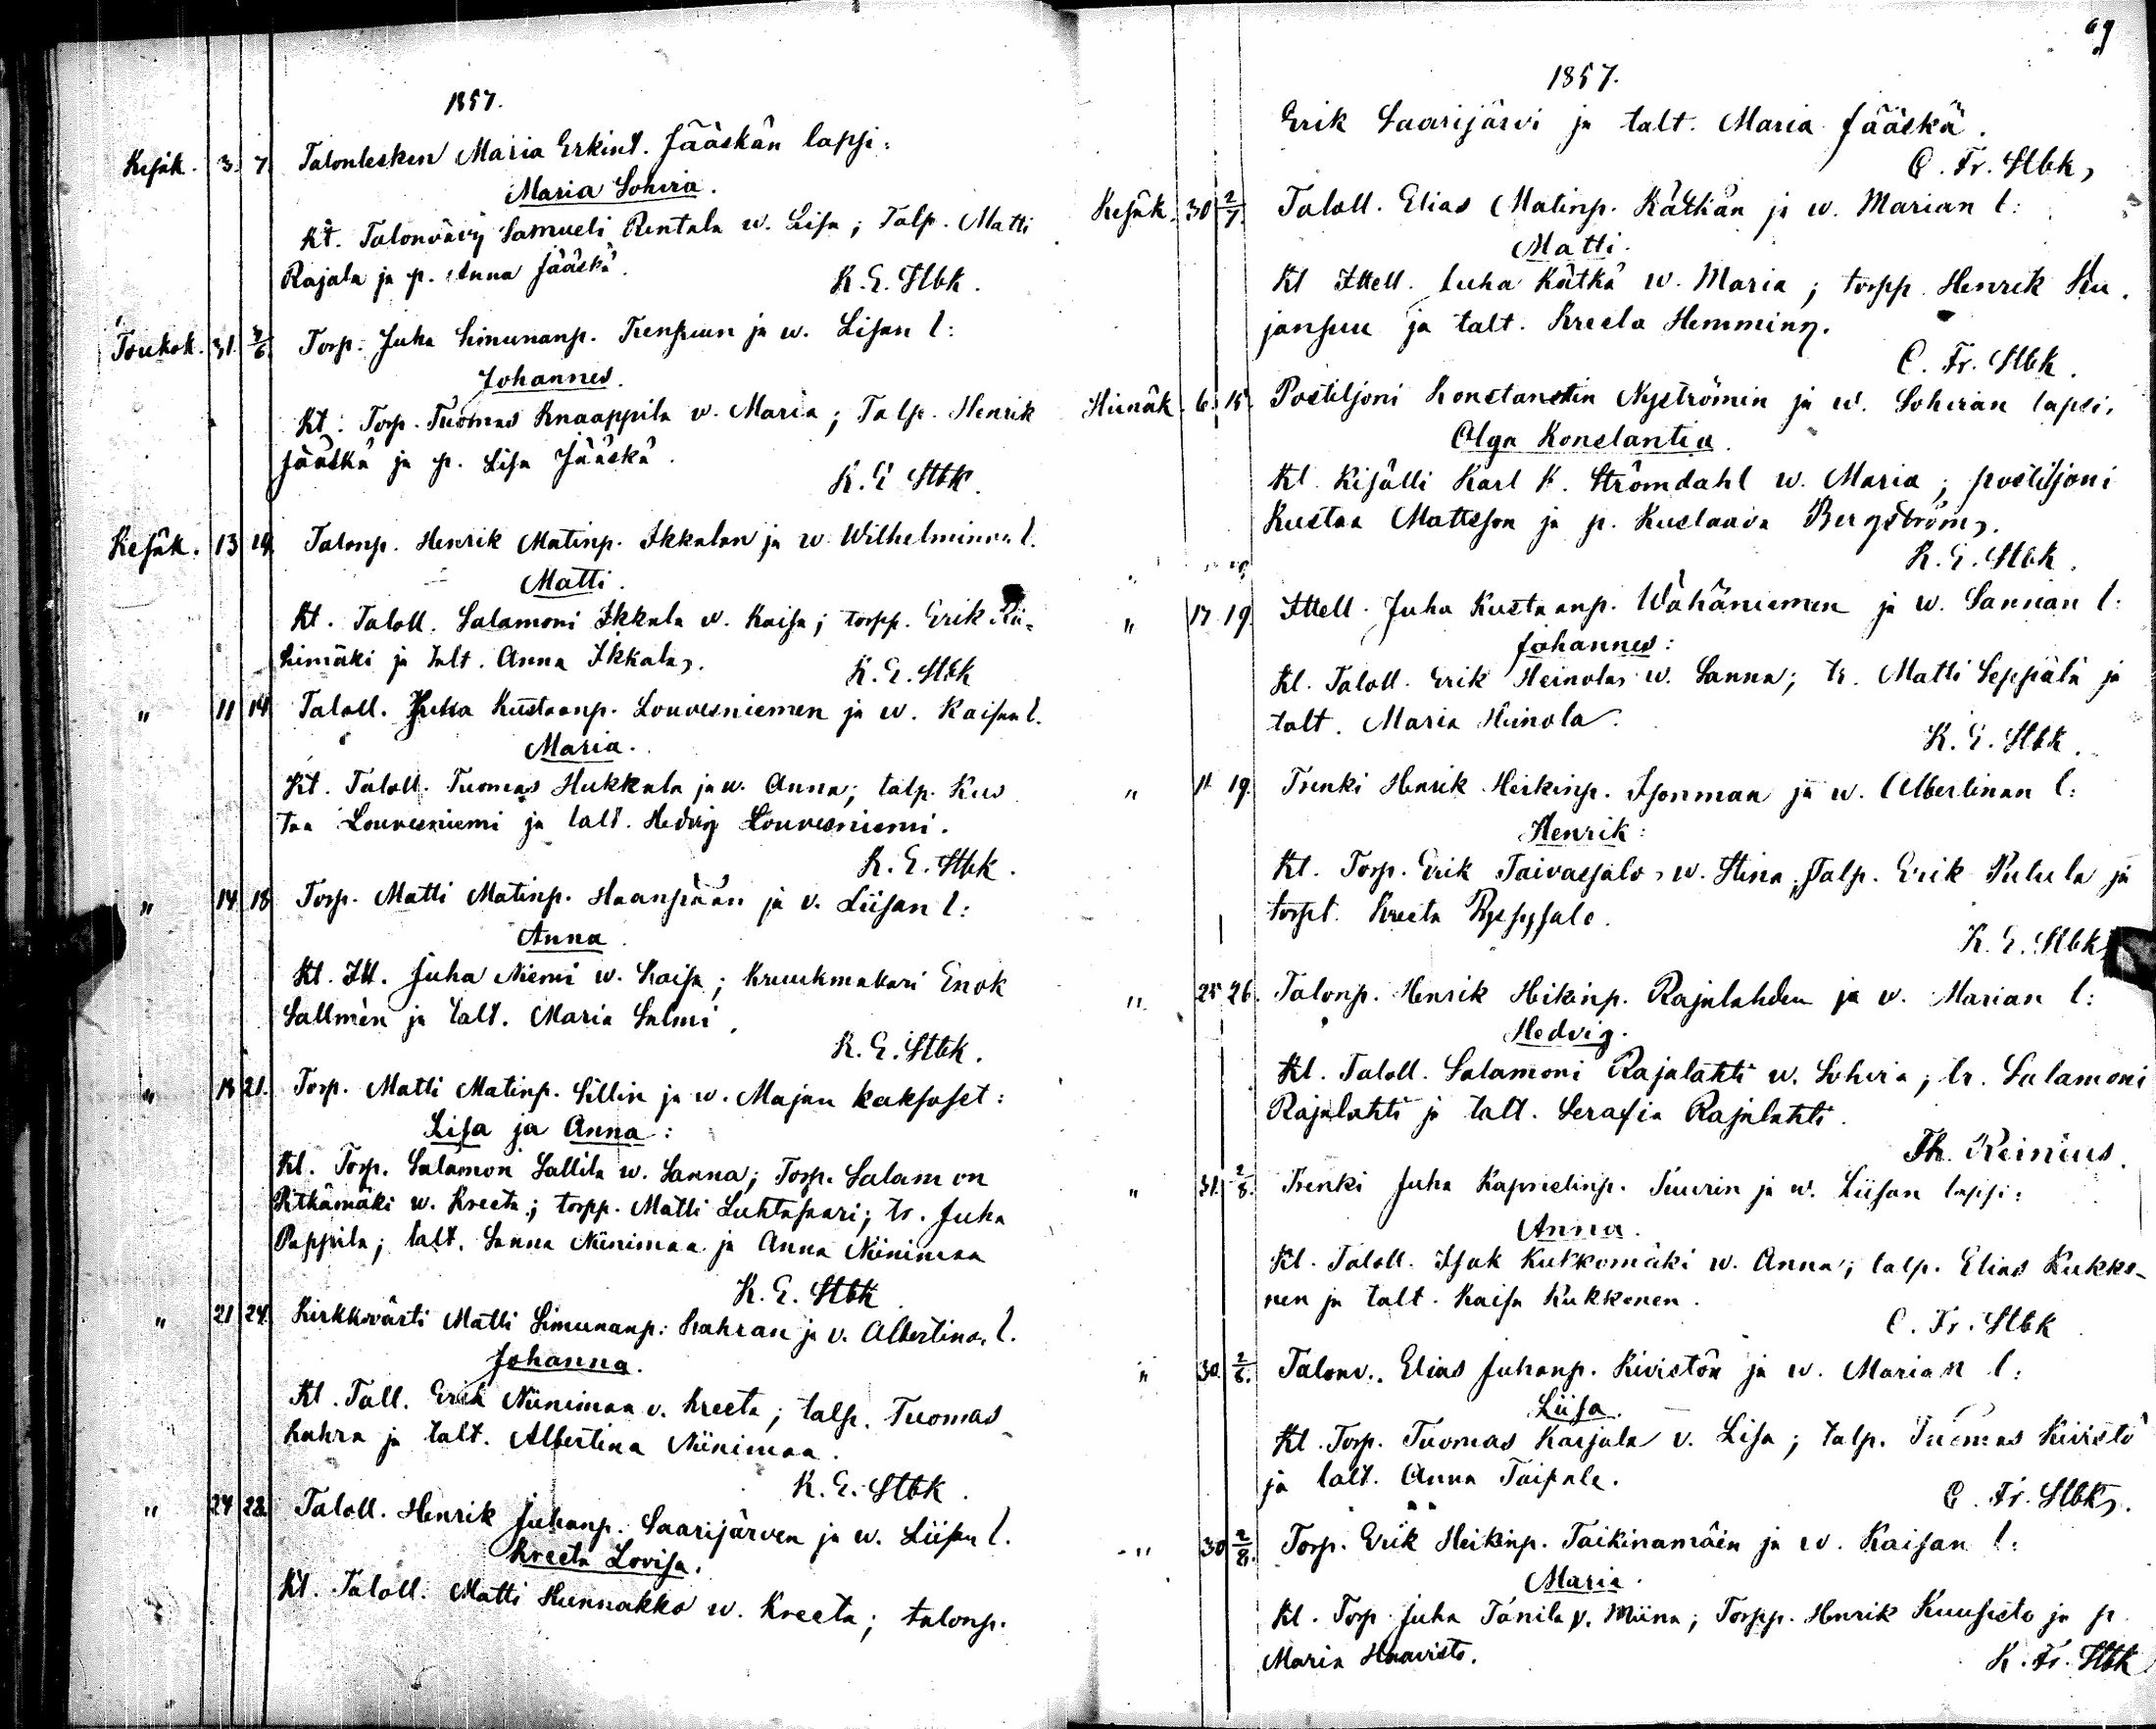 1857.
Kesäk. 3. 7. Talonlesken Maria Erkint. Jääskän lapsi:
Maria Sohvia.
Kt. Talonvävy Samueli Rentala w. Lisa; Talp. Matti
Rajala ja p. Anna Jääskä.
K. E. Stbk.
Toukok. 31. 7/6. Torp. Juha Simunanp. ja w. Lisan l:
Johannes.
Kt: Torp. Tuomas Knaappila w. Maria; Talp. Henrik
Jääskä ja p. Lisa Jääskä.
K. E. Stbk.
Kesäk. 13 19 Talonp. Henrik Matinp. Ikkalan ja w. Wilhelminan l.
Matti.
Kt. Taloll. Salamoni Ikkala w. Kaisa; torpp. Erik Rii-
himäki ja talt. Anna Ikkala.
K. E. Stbk
" 11 14 Taloll. Juha Kustaanp. Louvesniemen ja w. Kaisan l.
Maria.
Kt. Taloll. Tuomas Hukkala ja w. Anna; talp. Kus
taa Louvesniemi ja talt. Hedvig Louvesniemi.
K. E. Stbk.
" 14 18 Torp. Matti Matinp. Haanpään ja v. Liisan l:
Anna
Kt. Itt. Juha Niemi w. Kaisa; Kruukmakari Enok
Sallmèn ja talt. Maria Salmi.
K. E. Stbk.
" 18 21. Torp. Matti Matinp. Sillin ja w. Majan kaksoset:
Lisa ja Anna:
Kt. Torp. Salamon Sallila w. Sanna; Torp. Salamon
Pitkämäki w. Kreeta; torpp. Matti Luhtasaari; tr. Juha
Pappila; talt. Sanna Niinimaa ja Anna Niinimaa
K. E. Stbk
" 21 24. Kirkkovärti Matti Simunanp. Kahran ja v. Albertinan l.
Johanna.
Kt. Tall. Erik Niinimaa v. Kreeta; talp. Tuomas
Kahra ja talt. Albertina Niinimaa.
K. E. Stbk.
" 24 28. Taloll. Henrik Juhanp. Saarijärven ja w. Liisan l.
Kreeta Lovisa.
Kt. Taloll. Matti Kunnakko w. Kreeta; talonp.
69
1857.
Erik Saarijärvi ja talt. Maria Jääskä.
C. Fr. Stbk,
Kesäk. 30 2/7. Taloll. Elias Matinp. Kätkän ja w. Marian l:
Matti.
Kt Ittell. Juha Kätkä w. Maria; torpp. Henrik Ku-
janpuu ja talt. Kreeta Hemming.
C. Fr. Stbk.
Heinäk. 6. 15. Postiljoni Konstantin Nyströmin ja w. Sohvian lapsi,
Olga Konstantia.
Kt. Kisälli Karl K. Strömdahl w. Maria; postiljoni
Kustaa Mattsson ja p. Kustaava Bergström.
K. E. Stbk.
" 17 19. Ittell. Juha Kustaanp. Wähäniemen ja w. Sannan l:
Johannes:
Kt. Taloll. Erik Heinola w. Sanna; tr. Matti Seppälä ja
talt. Maria Heinola.
K. E. Stbk.
" 11 19. Trenki Henrik Heikinp. Isonman ja w. Albertinan l:
Henrik:
Kt. Torp. Erik Taivassalo w. Stina; Talp. Erik Putula ja
torpt. Kreeta
K. E. Stbk
" 25 26. Talonp. Henrik Heikinp. Rajalahden ja v. Marian l:
Hedvig.
Kt. Taloll. Salamoni Rajalahti w. Sohvia; tr. Salamoni
Rajalahti ja talt. Serafia Rajalahti.
Th. Reinius.
" 31. 2/8. Trenki Juha Kaprielinp. Tuurin ja w. Liisan lapsi:
Anna.
Kt. Taloll. Isak Kukkomäki w. Anna; talp. Elias Kukko-
nen ja talt. Kaisa Kukkonen.
C. Fr. Stbk
" 30. 2/8. Talonv. Elias Juhanp. Kivistön ja w. Marian l:
Liisa.
Kt. Torp. Tuomas Karjala v. Lisa; talp. Tuomas Kivistö
ja talt. Anna Taipale.
C. Fr. Stbk.
" 30 2/8. Torp. Erik Heikinp. Taikinamäen ja w. Kaisan l:
Maria.
Kt. Torp. Juha Tánila v. Miina; Torpp. Henrik Kuusisto ja p.
Maria Haavisto.
K. Fr. Stbk